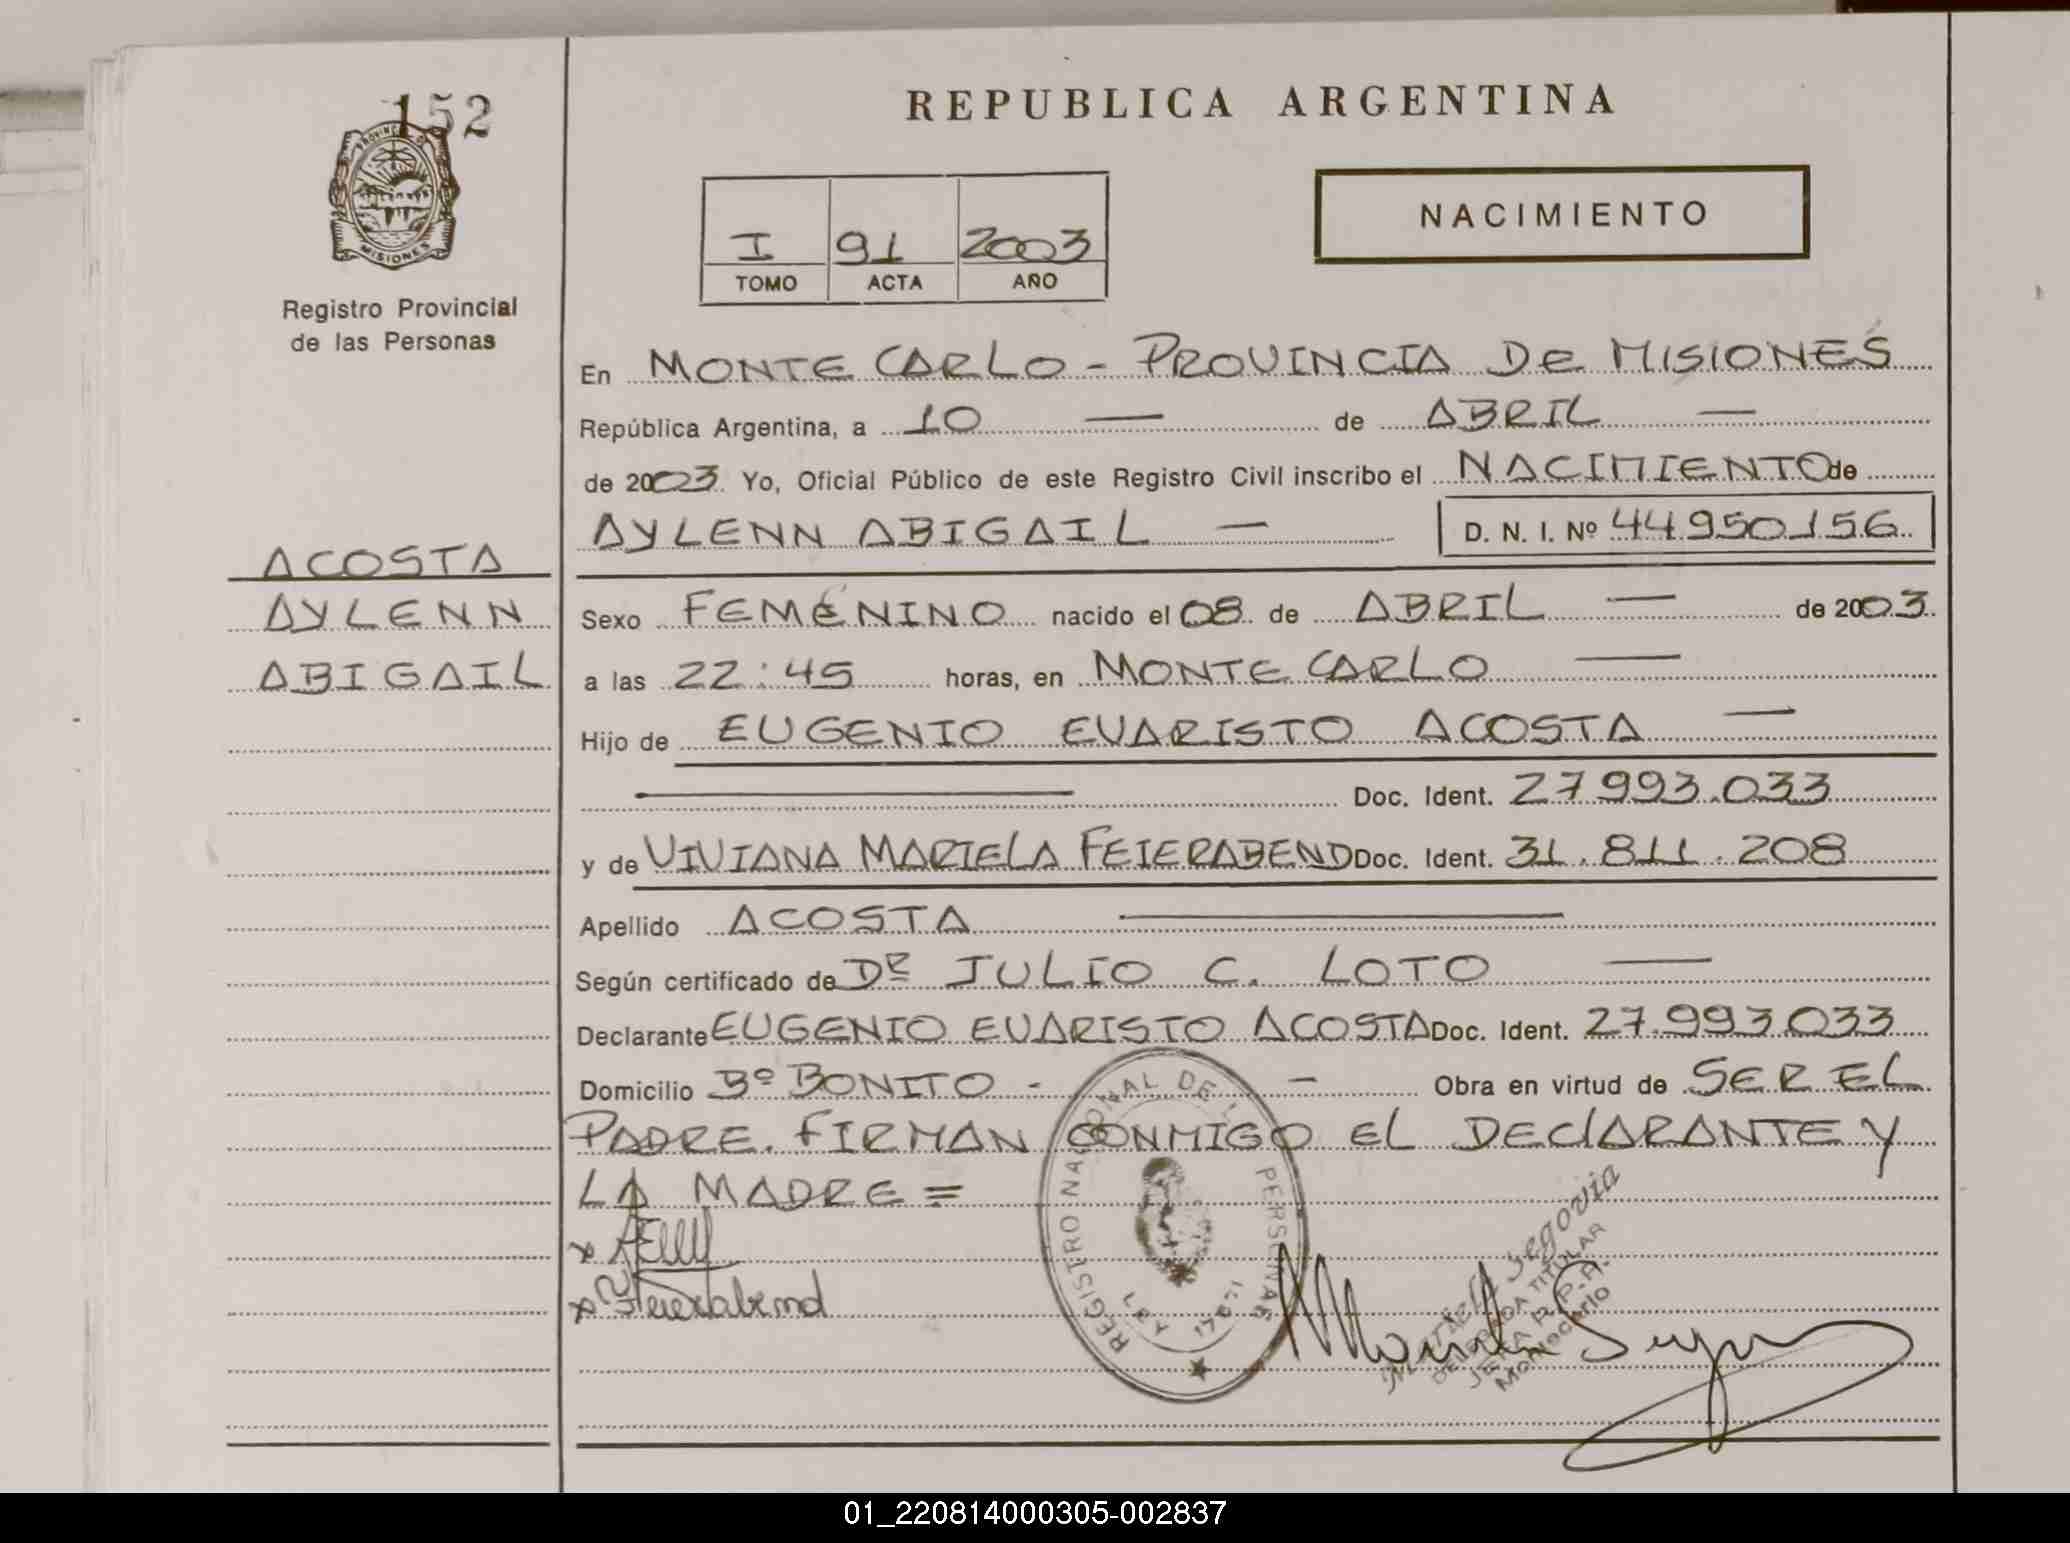 152
PROVINCIA DE
MISIONES
Registro Provincial
de las Personas
ACOSTA
AYLENN
ABIGAIL
REPUBLICA ARGENTINA
I 91 2003
TOMO ACTA AÑO
NACIMIENTO
En MONTE CARLO - PROVINCIA De MISIONES
República Argentina, a 10 — de ABRIL —
de 2003 Yo, Oficial Público de este Registro Civil inscribo el NACIMIENTO de
AYLENN ABIGAIL — D. N. I. Nº 44.950.156
Sexo FEMENINO nacido el 08 de ABRIL — de 2003
a las 22:45 horas, en MONTE CARLO —
Hijo de EUGENIO EVARISTO ACOSTA —
— Doc. Ident. 27.993.033
y de VIVIANA MARIELA FEIERABEND Doc. Ident. 31.811.208
Apellido ACOSTA —
Según certificado de Dr JULIO C. LOTO —
Declarante EUGENIO EVARISTO ACOSTA Doc. Ident. 27.993.033
Domicilio Bº BONITO - — Obra en virtud de SER EL
PADRE. FIRMAN CONMIGO EL DEClARANTE Y
LA MADRE =
x
x Feierabend
REGISTRO NACIONAL DE LAS PERSONAS
Mariela Segovia
DELEGADA TITULAR
JEFA R.P.P.
Montecarlo
01_220814000305-002837